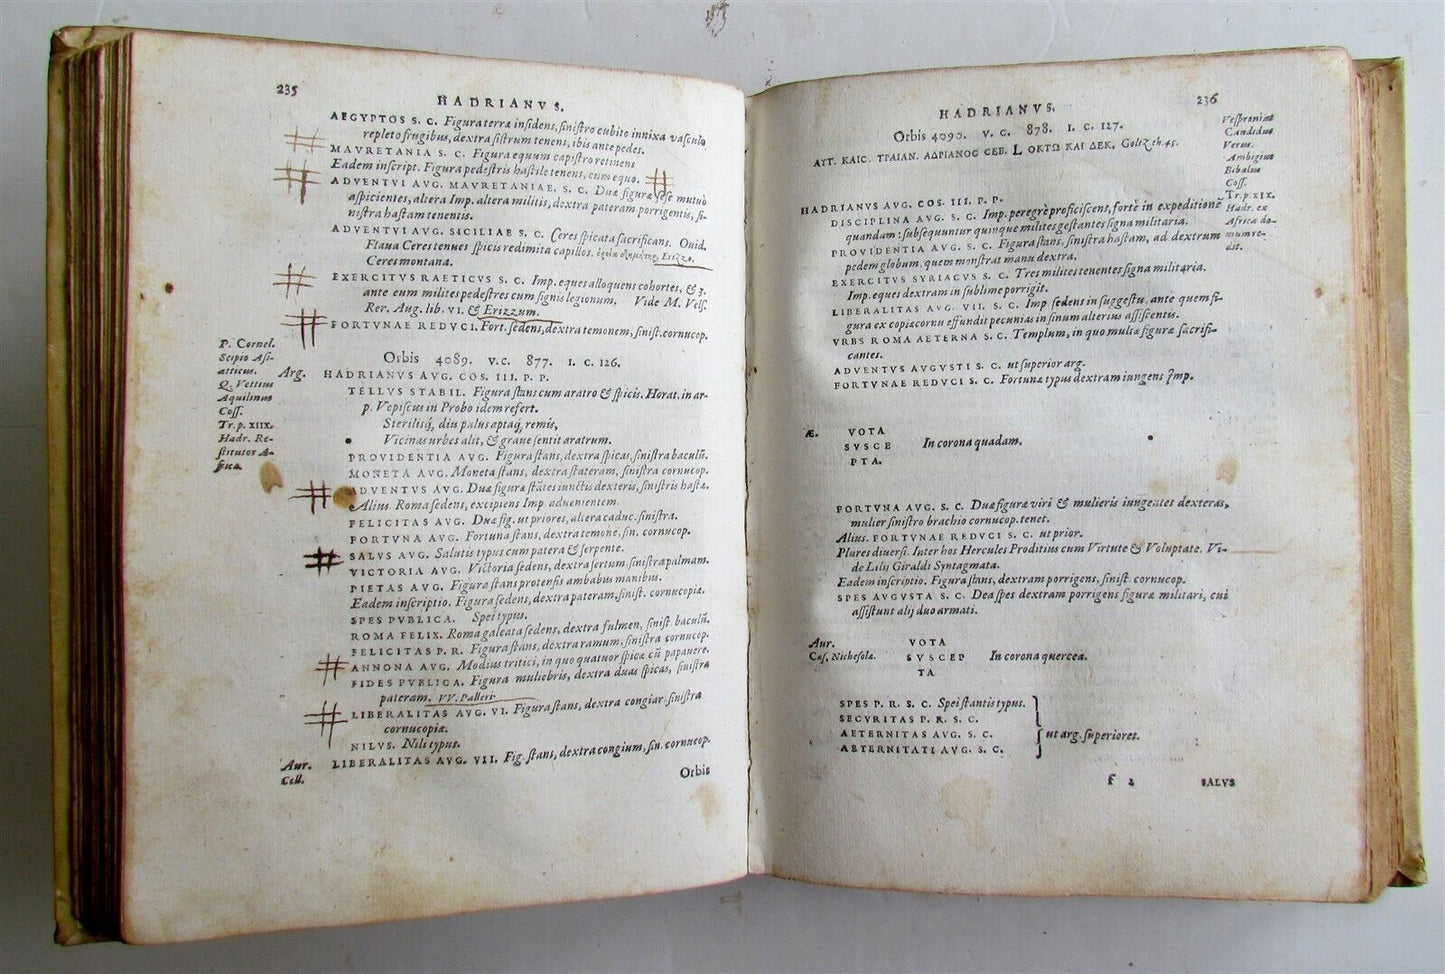 235
HADRIANVS.
AEGYPTOS S. C. Figura terræ insidens, sinistro cubito innixa vasculo
repleto frugibus, dextra sistrum tenens, ibis ante pedes.
MAVRETANIA S. C. Figura equum capistro retinens
Eadem inscript. Figura pedestris hastile tenens, cum equo.
ADVENTVI AVG. MAVRETANIAE. S. C. Duæ figuræ sese mutuò
aspicientes, altera Imp. altera militis, dextra pateram porrigentis, si-
nistra hastam tenentis.
ADVENTVI AVG. SICILIAE S. C. Ceres spicata sacrificans. Ouid.
Flaua Ceres tenues spicis redimita capillos. Erizzo.
Ceres montana.
EXERCITVS RAETICVS S. C. Imp. eques alloquens cohortes, & 3.
ante eum milites pedestres cum signis legionum. Vide M. Vels.
Rer. Aug. lib. VI. & Erizzum.
FORTVNAE REDVCI. Fort. sedens, dextra temonem, sinist. cornucop.
Orbis 4089. V.C. 877. I. C. 126.
P. Cornel.
Scipio Asi-
aticus.
Q. Vettius
Aquilinus
Coss.
Tr. p. XIIX.
Hadr. Re-
stitutor A-
frica.
Arg.
HADRIANVS AVG. COS. III. P. P.
TELLVS STABIL. Figura stans cum aratro & spicis. Horat. in ar-
p. Vopiscus in Probo idem refert.
Sterilisq́, diu palus aptaq́, remis,
Vicinas urbes alit, & graue sentit aratrum.
PROVIDENTIA AVG. Figura stans, dextra spicas, sinistra baculũ.
MONETA AVG. Moneta stans, dextra stateram, sinistra cornucop.
ADVENTVS AVG. Duæ figuræ stãtes iunctis dexteris, sinistris hastæ.
Alius. Roma sedens, excipiens Imp aduenientem.
FELICITAS AVG. Duæ fig. ut priores, altera caduc. sinistra.
FORTVNA AVG. Fortuna stans, dextra temonẽ, sin. cornucop.
SALVS AVG. Salutis typus cum patera & serpente.
VICTORIA AVG. Victoria sedens, dextra sertum, sinistra palmam.
PIETAS AVG. Figura stans protensis ambabus manibus.
Eadem inscriptio. Figura sedens, dextra pateram, sinist. cornucopiæ.
SPES PVBLICA. Spei typus.
ROMA FELIX. Roma galeata sedens, dextra fulmen, sinist baculũ.
FELICITAS P. R. Figura stans, dextra ramum, sinistra cornucop.
ANNONA AVG. Modius tritici, in quo quatuor spicæ cũ papauere.
FIDES PVBLICA. Figura muliebris, dextra duas spicas, sinistra
pateram. VV. Palleri.
LIBERALITAS AVG. VI. Figura stans, dextra congiar. sinistra
cornucopiæ.
NILVS. Nili typus.
Aur.
Cell.
LIBERALITAS AVG. VII. Fig. stans, dextra congium, sin. cornucop.
Orbis
236
HADRIANVS.
Orbis 4090. V. C. 878. I. C. 127.
ΑΥΤ. ΚΑΙC. ΤΡΑΙΑΝ. ΑΔΡΙΑΝΟC CEB. L ΟΚΤΩ ΚΑΙ ΔΕΚ. Goltz. th. 45.
Vespronius
Candidus
Verus.
Ambigius
Bibalus
Coss.
Tr. p. XIX.
Hadr. ex
Africa do-
mum re-
dit.
HADRIANVS AVG. COS. III. P. P.
DISCIPLINA AVG. S. C. Imp. peregrè proficiscens, fortè in expeditionẽ
quandam: subsequuntur quinque milites gestantes signa militaria.
PROVIDENTIA AVG. S. C. Figura stans, sinistra hastam, ad dextrum
pedem globum, quem monstrat manu dextra.
EXERCITVS SYRIACVS S. C. Tres milites tenentes signa militaria.
Imp. eques dextram in sublime porrigit.
LIBERALITAS AVG. VII. S. C. Imp sedens in suggestu, ante quem fi-
gura ex copiæ cornu effundit pecunias in sinum alterius assistentis.
VRBS ROMA AETERNA S. C. Templum, in quo multæ figuræ sacrifi-
cantes.
ADVENTVS AVGVSTI S. C. ut superior arg.
FORTVNAE REDVCI S. C. Fortunæ typus dextram iungens Imp.
Æ.
VOTA
SVSCE
PTA.
In corona quadam.
FORTVNA AVG. S. C. Duæ figuræ viri & mulieris iungentes dexteras,
mulier sinistro brachio cornucop. tenet.
Alius. FORTVNAE REDVCI S. C. ut prior.
Plures diuersi. Inter hos Hercules Proditius cum Virtute & Voluptate. Vi-
de Lilij Giraldi Syntagmata.
Eadem inscriptio. Figura stans, dextram porrigens, sinist. cornucop.
SPES AVGVSTA S. C. Dea spes dextram porrigens figuræ militari, cui
assistunt alij duo armati.
Aur.
Cæs. Nichesolæ.
VOTA
SVSCEP
TA
In corona quercea.
SPES P. R. S. C. Spei stantis typus.
SECVRITAS P. R. S. C.
AETERNITAS AVG. S. C.
AETERNITATI AVG. S. C.
ut arg. superiores.
f 2
SALVS